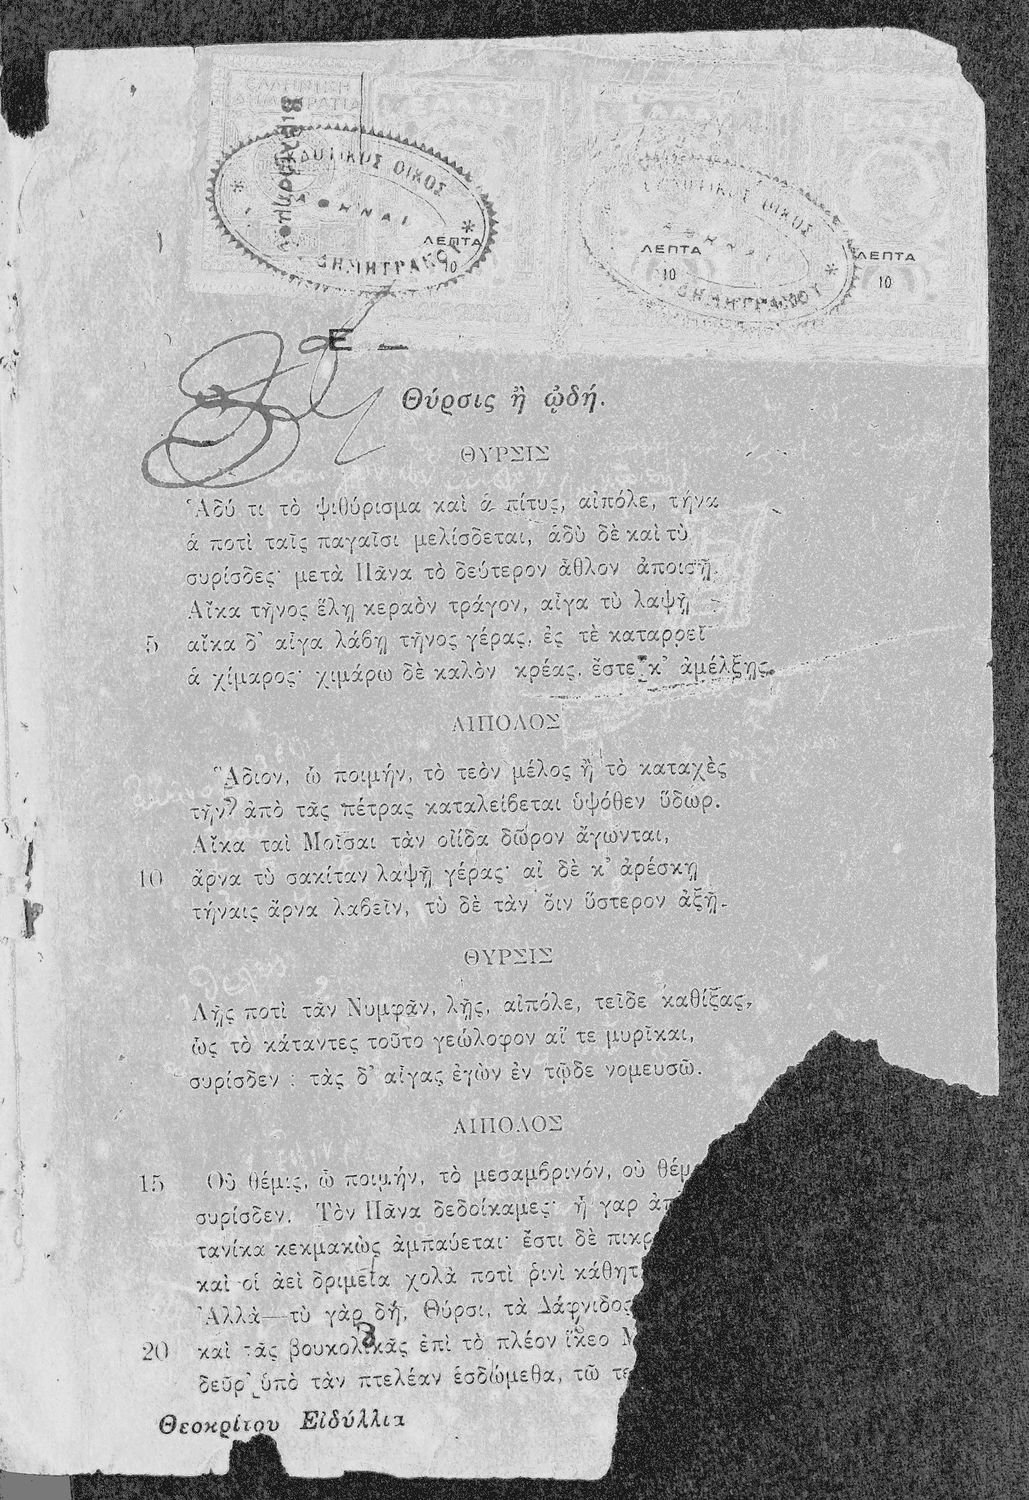 ΕΛΛΗΝΙΚΗ
ΔΗΜΟΚΡΑΤΙΑ
ΕΛΛΑΣ
ΕΛΛΑΣ
ΕΛΛΑΣ
ΕΚΔΟΤΙΚΟΣ ΟΙΚΟΣ
ΑΘΗΝΑΙ
ΔΗΜΗΤΡΑΚΟΥ
ΛΕΠΤΑ
10
ΕΚΔΟΤΙΚΟΣ ΟΙΚΟΣ
ΑΘΗΝΑΙ
ΔΗΜΗΤΡΑΚΟΥ
ΛΕΠΤΑ
10
ΛΕΠΤΑ
10
Θύρσις ἢ ᾠδή.
ΘΥΡΣΙΣ
Ἁδύ τι τὸ ψιθύρισμα καὶ ἁ πίτυς, αἰπόλε, τήνα
ἁ ποτὶ ταῖς παγαῖσι μελίσδεται, ἁδὺ δὲ καὶ τὺ
συρίσδες· μετὰ Πᾶνα τὸ δεύτερον ἆθλον ἀποισῇ.
Αἴκα τῆνος ἕλῃ κεραὸν τράγον, αἶγα τὺ λαψῇ
5 αἴκα δ’ αἶγα λάβῃ τῆνος γέρας, ἐς τὲ καταρρεῖ
ἁ χίμαρος· χιμάρω δὲ καλὸν κρέας, ἔστε κ’ ἀμέλξῃς.
ΑΙΠΟΛΟΣ
Ἅδιον, ὦ ποιμήν, τὸ τεὸν μέλος ἢ τὸ καταχὲς
τῆν’ ἀπὸ τᾶς πέτρας καταλείβεται ὑψόθεν ὕδωρ.
Αἴκα ταὶ Μοῖσαι τὰν οἰίδα δῶρον ἄγωνται,
10 ἄρνα τὺ σακίταν λαψῇ γέρας· αἰ δὲ κ’ ἀρέσκῃ
τήναις ἄρνα λαβεῖν, τὺ δὲ τὰν ὄιν ὕστερον ἀξῇ.
ΘΥΡΣΙΣ
Λῇς ποτὶ τᾶν Νυμφᾶν, λῇς, αἰπόλε, τεῖδε καθίξας,
ὡς τὸ κάταντες τοῦτο γεώλοφον αἵ τε μυρῖκαι,
συρίσδεν ; τὰς δ’ αἶγας ἐγὼν ἐν τῷδε νομευσῶ.
ΑΙΠΟΛΟΣ
15 Οὐ θέμις, ὦ ποιμήν, τὸ μεσαμβρινόν, οὐ θέμ
συρίσδεν. Τὸν Πᾶνα δεδοίκαμες· ἦ γαρ ἀπ
τανίκα κεκμακὼς ἀμπαύεται· ἔστι δὲ πικρ
καὶ οἱ ἀεὶ δριμεῖα χολὰ ποτὶ ῥινὶ κάθητ
Ἀλλὰ—τὺ γὰρ δή, Θύρσι, τὰ Δάφνιδος
20 καὶ τᾶς βουκολικᾶς ἐπὶ τὸ πλέον ἵκεο Μ
δεῦρ’ ὑπὸ τὰν πτελέαν ἑσδώμεθα, τῶ τε
Θεοκρίτου Εἰδύλλια
3